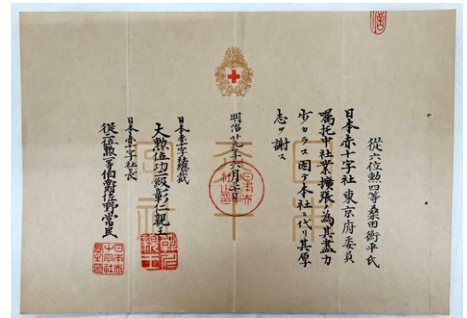 從六位勲四等桑田衡平氏
日本赤十字社東京府委員
嘱托中社業擴張ノ為其盡力
少カラス因テ本社ニ代リ其厚
志ヲ謝ス
明治廿九年六月三十日
日本赤十字總裁
大勲位功二級彰仁親王
日本赤十字社長
從二位勲一等伯爵佐野常民